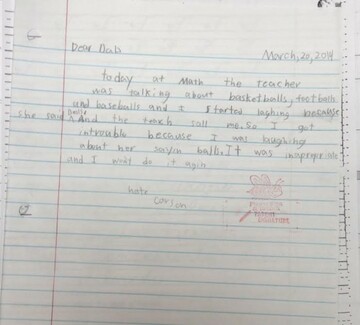 Dear Dab
March, 20, 2014
today at Math the teacher
was talking about basketballs, footballs
and baseballs and I started laghing because
she said balls. And the teach sall me. So I got
introuble because I was laughing
about her sayin balls. It was inapropriate
and I wont do it agin.
hate
Carson